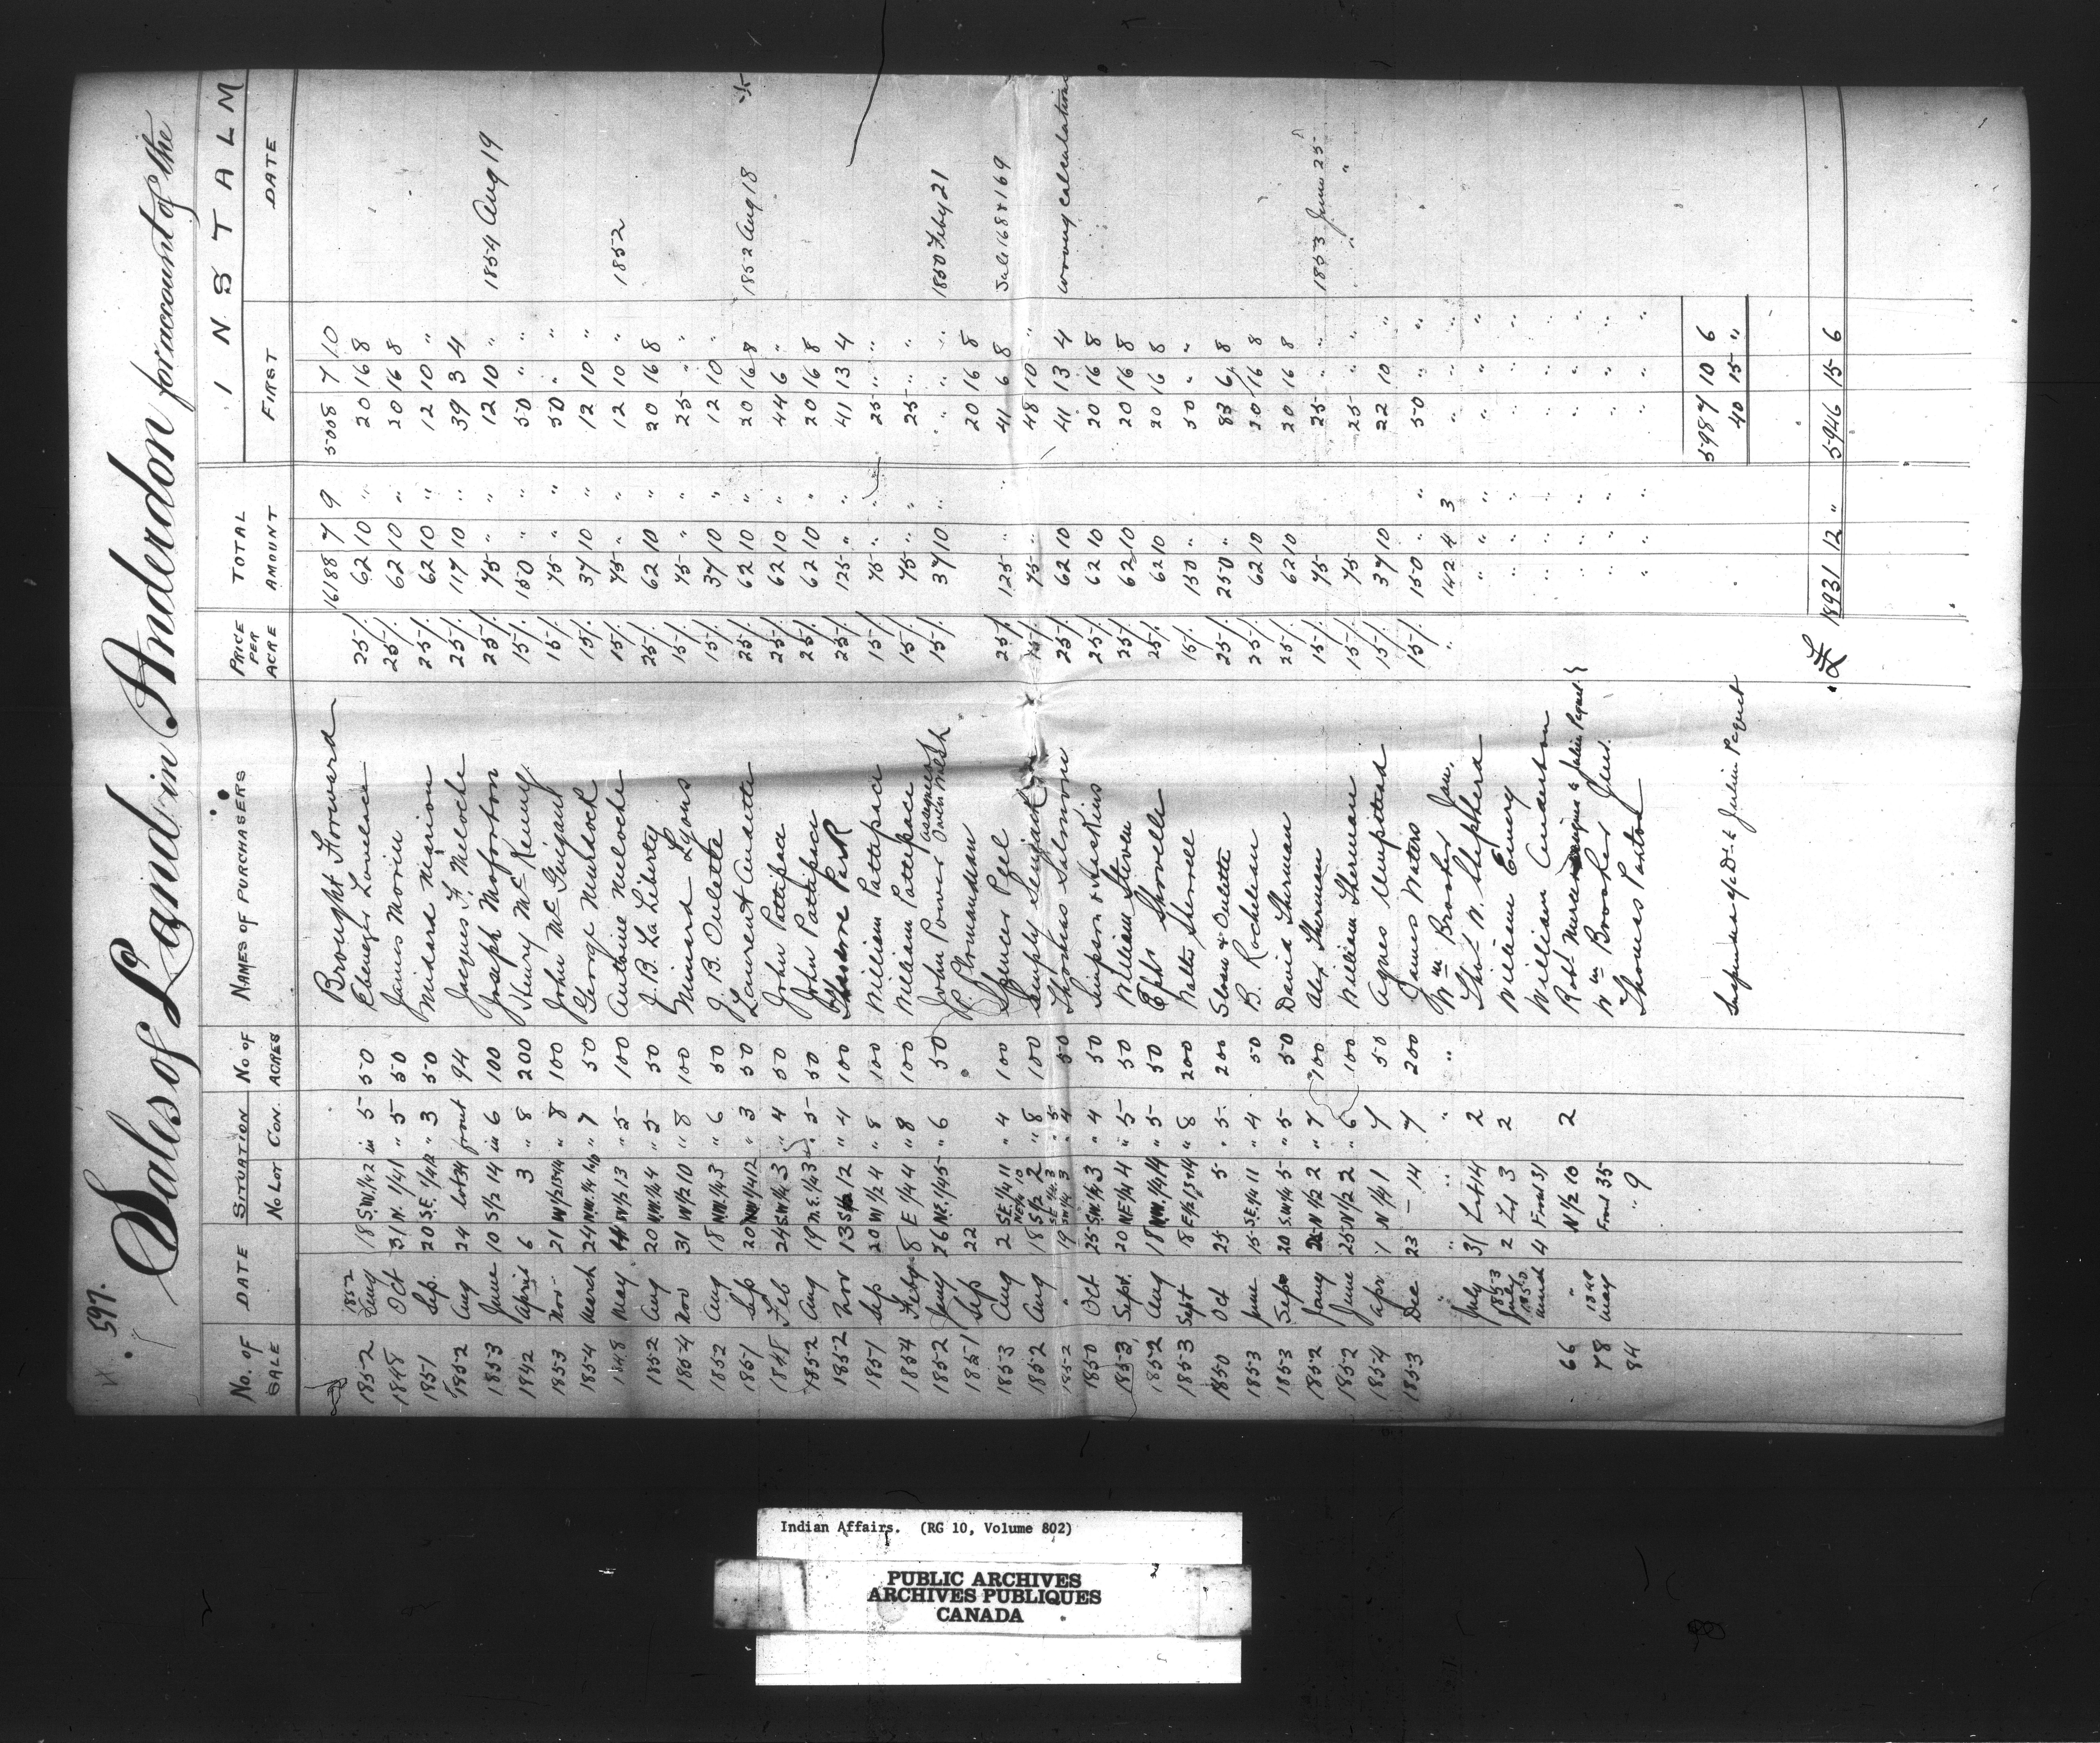 597.
Sales of Land in Anderdon for account of the
No. OF SALE DATE SITUATION No Lot CON. No OF ACRES NAMES OF PURCHASERS PRICE PER ACRE TOTAL AMOUNT INSTALM FIRST DATE
Brought Forward 16188 7 9 5008 7 10
1852 1852 18 S.W. 1/4 2 in 5 50 Ebenezer Loveless 25/. 62 10 " 20 16 8
1848 Oct 31 N. 1/4 1 " 5 50 James Morin 25/. 62 10 " 20 16 8
1851 Sep. 20 S.E. 1/4 12 " 3 50 Midard Marion 25/. 62 10 " 12 10 "
1852 Aug 24 Lot 34 front 94 Jacques F. Meloche 25/. 117 10 " 39 3 4
1853 June 10 S 1/2 14 in 6 100 Joseph Moforton 25/. 75 " " 12 10 " 1854 Aug 19
1842 April 6 3 " 8 200 Henry McKenny 15/. 150 " " 50 " "
1853 Nov 21 W 1/2 13 & 14 " 8 100 John McGuigan 15/. 75 " " 50 " "
1854 March 24 N.W. 1/4 " 7 50 George Murdock 15/. 37 10 " 12 10 "
1848 May W 1/2 13 " 5 100 Antoine Meloche 15/. 75 " " 12 10 " 1852
1852 Aug 20 N.W. 1/4 4 " 5 50 J. B. La Liberty 25/. 62 10 " 20 16 8
1854 Nov 31 W 1/2 10 " 8 100 Minard Lyons 15/. 75 " " 25 " "
1852 Aug 18 N.W. 1/4 3 " 6 50 J. B. Oulette 15/. 37 10 " 12 10 "
1851 Sep 20 N.W. 1/4 12 " 3 50 Laurent Audette 25/. 62 10 " 20 16 8 1852 Aug 18
1848 Feb 24 S.W. 1/4 3 " 4 50 John Pattipace 25/. 62 10 44 6 "
1852 Aug 19 N.E. 1/4 3 " 5 50 John Pattipace 25/. 62 10 " 20 16 8
1852 Nov 13 S 1/2 12 " 4 100 Park 25/. 125 " " 41 13 4
1851 Sep 20 W 1/2 4 " 8 100 William Pattipace 15/. 75 " " 25 " "
1854 Feby 8 E 1/4 4 " 8 100 William Pattipace 15/. 75 " " 25 " "
1852 Jany 26 N.E. 1/4 5 " 6 50 John Power assignee Owen 15/. 37 10 " " " " 1850 Feby 21
1851 Sep 22 P. Plomandeau 20 16 8
1853 Aug 2 S.E. 1/4 11 " 4 100 Spencer Pyel 25/. 125 " " 41 6 8 Sale 168 & 169
1852 Aug 18 S 1/2 2 " 8 100 15/. 75 " 48 10 "
1852 " 19 S.W. 1/4 3 " 4 50 Thomas Salmoni 25/. 62 10 41 13 4 wrong calculation
1850 Oct 25 S.W. 1/4 3 " 4 50 Simpson & Haskins 25/. 62 10 20 16 8
1853 Sept. 20 N.E 1/4 4 " 5 50 William Steven 25/. 62 10 20 16 8
1852 Aug 18 N.W. 1/4 14 " 5 50 Ephs Shovelle 25/. 62 10 20 16 8
1853 Sept 18 E 1/2 13 & 14 " 8 200 15/. 150 " 50 " "
1850 Oct 25 5 " 5 200 Sloan & Oulette 25/. 250 " 83 6 8
1853 June 15 S.E. 1/4 11 " 4 50 B. Rocheleau 25/. 62 10 20 16 8
1853 Sept 20 S.W. 1/4 5 " 5 50 David Sherman 25/. 62 10 20 16 8
1852 Jany N 1/2 2 " 7 100 Alex Sherman 15/. 75 25 " " 1853 June 25
1852 June 25 N 1/2 2 " 6 100 William Sherman 15/. 75 25 " " " "
1854 Apr 1 N 1/4 1 7 50 Agnes Umpstead 15/. 37 10 22 10 "
1853 Dec 23 – 14 7 200 James Waters 15/. 150 " " 50 " "
" " " " " Wm Brooker Jun. " 142 4 3 " " "
July 31 Lot 14 2 Thos. W. Shepherd " " " " "
1853 July 2 Lot 3 2 William Emery " " " " "
1850 March 4 Front 31 William Anderton " " " " "
66 " N 1/2 10 2 Robt. assignee to Julien Peguet " " " " "
78 1848 May Front 35 Wm Brooker Jun. " " " " "
84 " 9 Thomas Paxton " " " " "
5987 10 6
Julien Peguet 40 15 "
£ 18931 12 " 5946 15 6
Indian Affairs. (RG 10, Volume 802)
PUBLIC ARCHIVES
ARCHIVES PUBLIQUES
CANADA